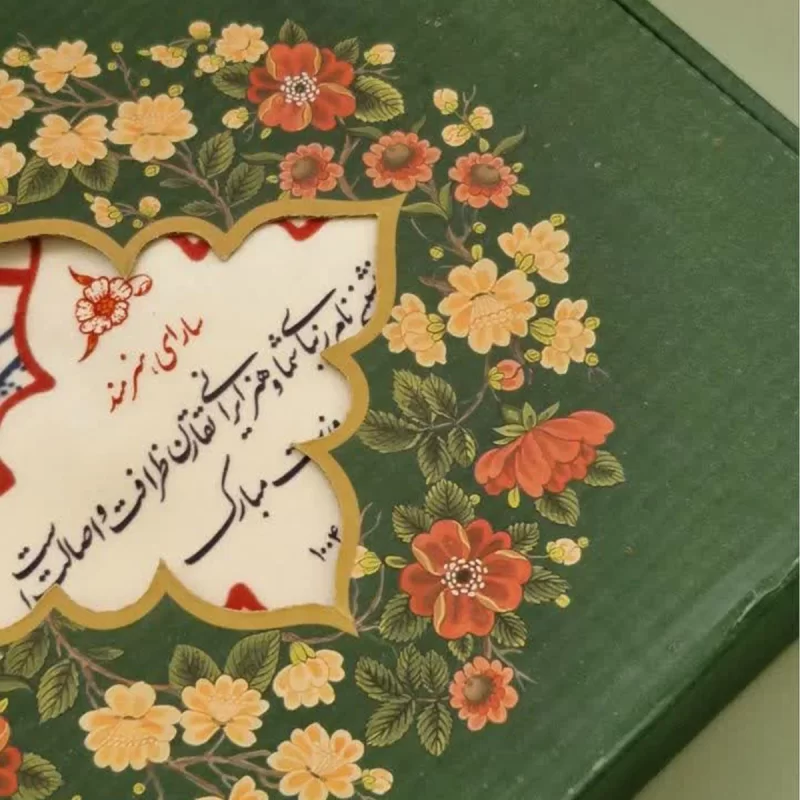 سارای هنرمند
نام زیبای شما و هنر ایرانی
تقارن ظرافت و اصالت
ست
مبارک
۱۰۰۴